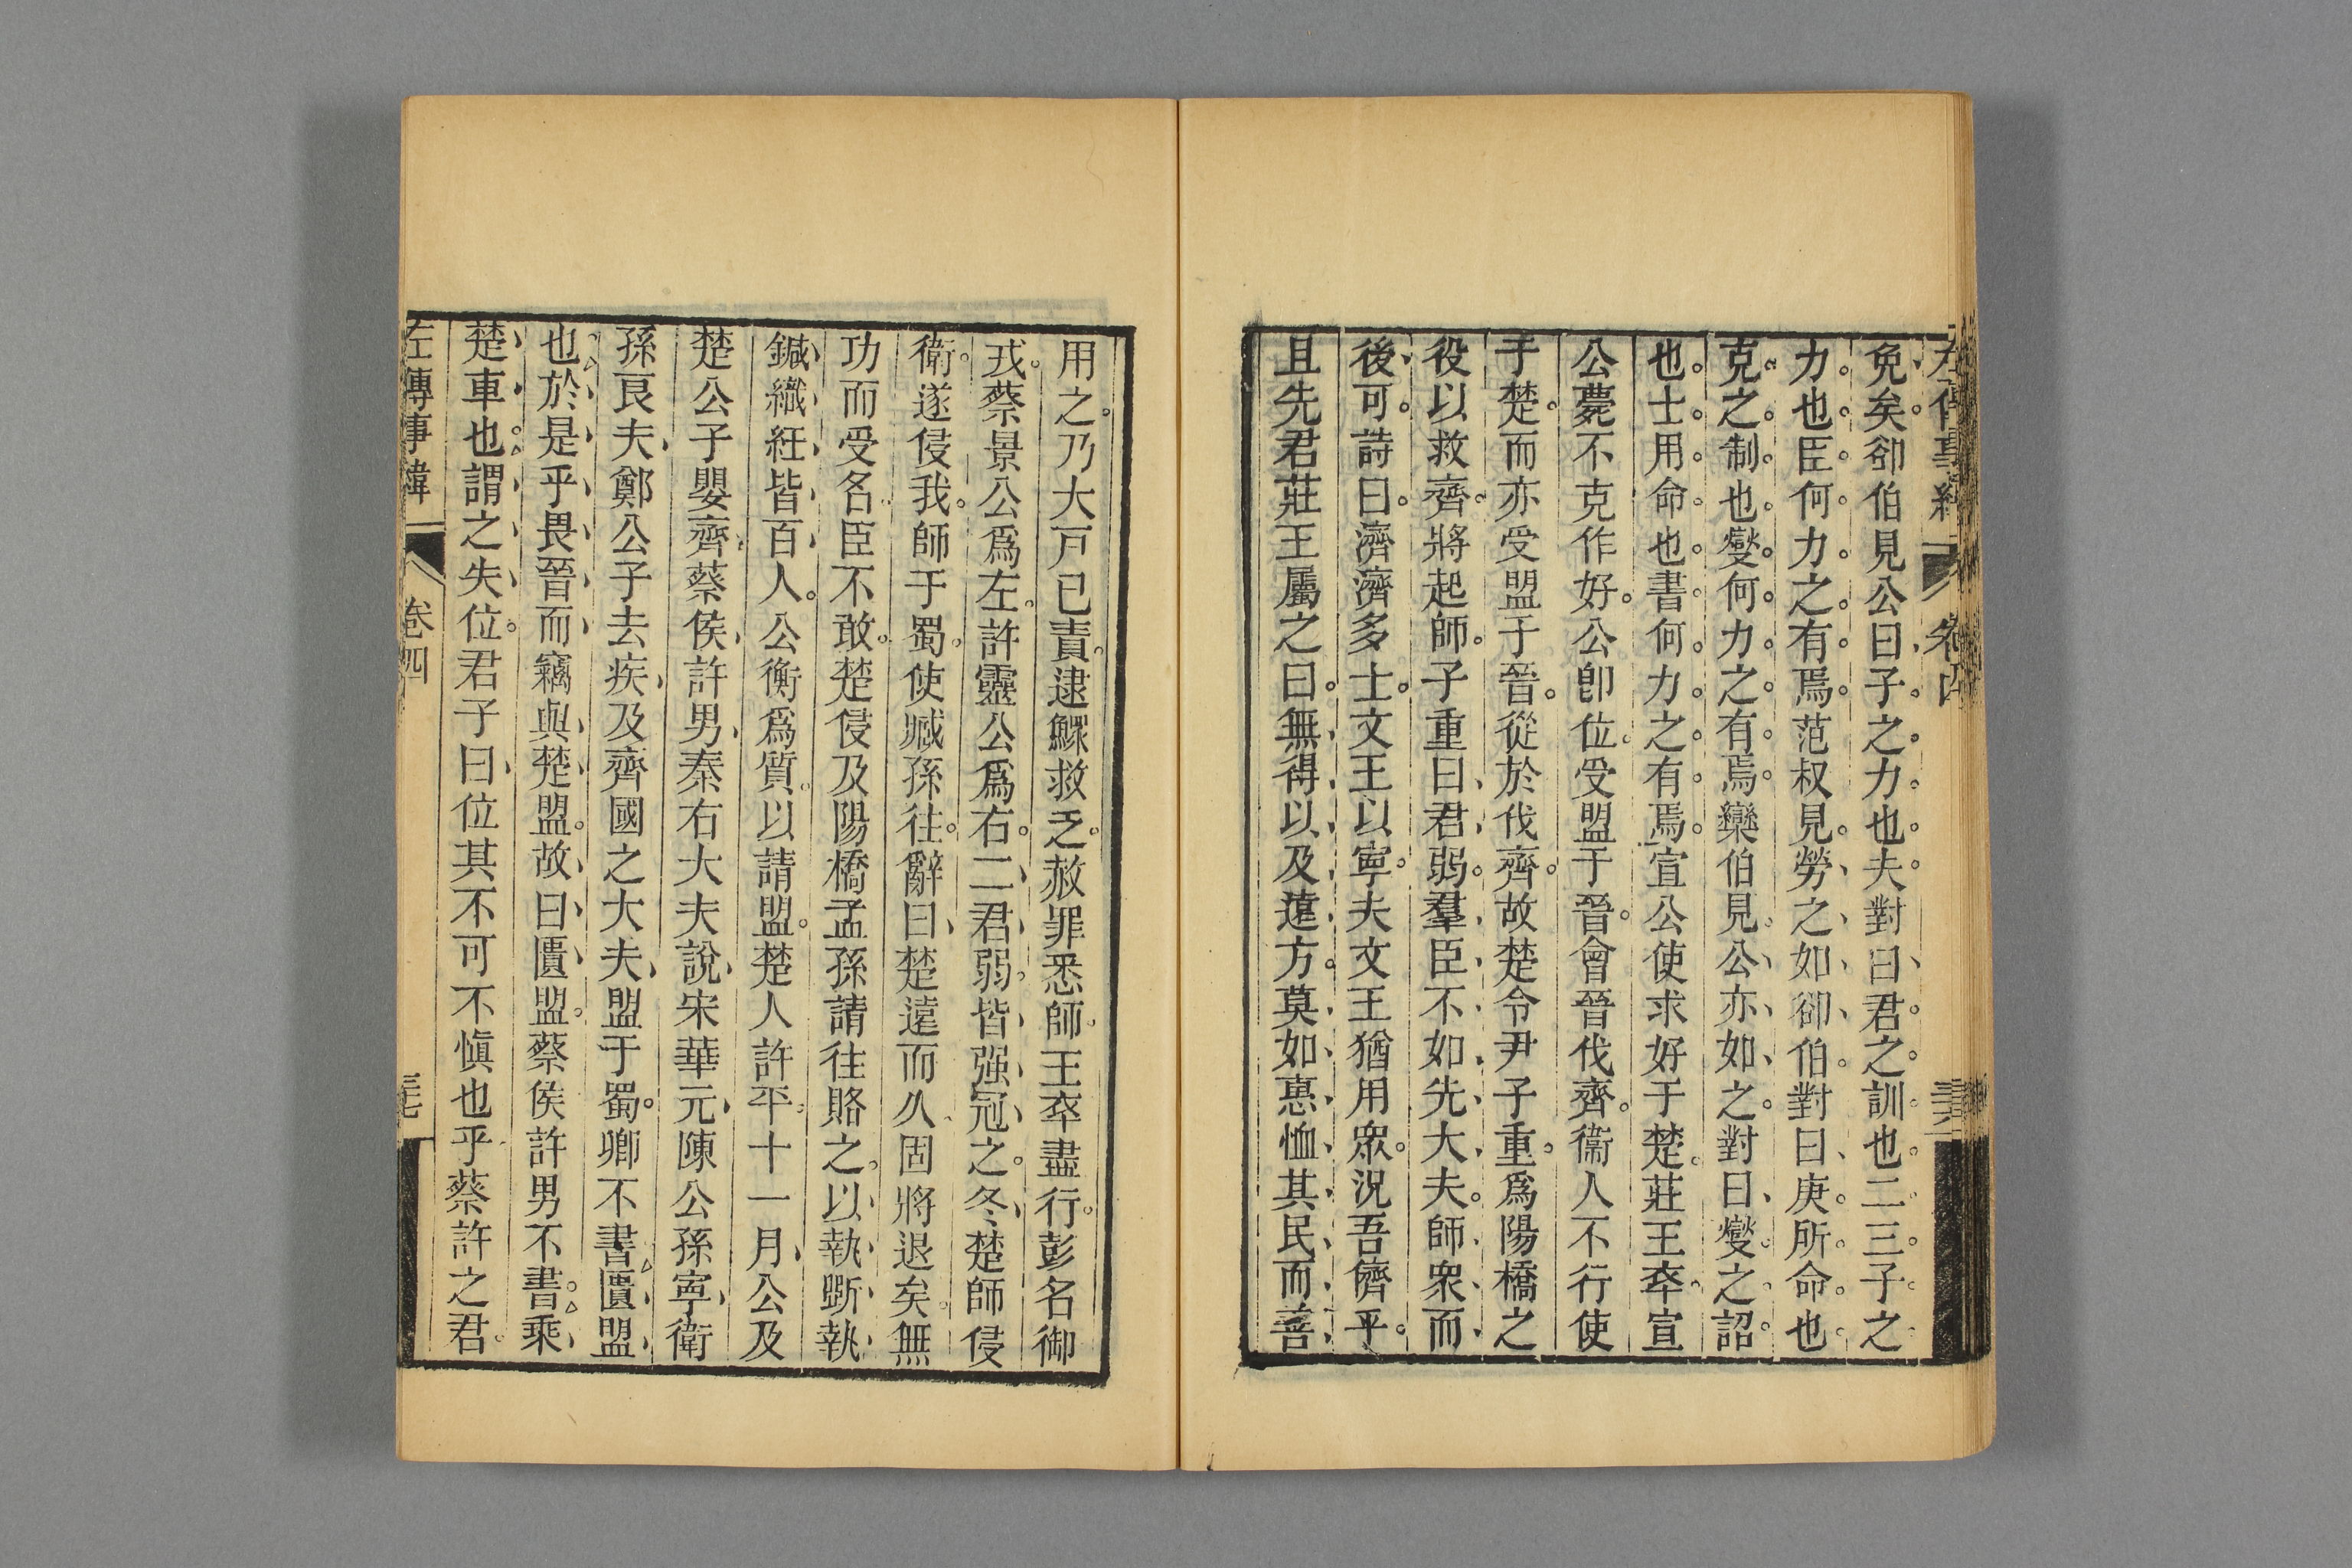 免矣郤伯見公曰子之力也夫對曰君之訓也二三子之
力也臣何力之有焉范叔見勞之如郤伯對曰庚所命也
克之制也燮何力之有焉欒伯見公亦如之對曰燮之詔
也士用命也書何力之有焉宣公使求好于楚莊王卒宣
公薨不克作好公卽位受盟于晉會晉伐齊衞人不行使
于楚而亦受盟于晉從於伐齊故楚令尹子重爲陽橋之
役以救齊將起師子重曰君弱羣臣不如先大夫師衆而
後可詩曰濟濟多士文王以寧夫文王猶用眾況吾儕乎
且先君莊王屬之曰無得以及遠方莫如惠恤其民而善
用之乃大戸已責逮鰥救乏赦罪悉師王卒盡行彭名御
戎蔡景公爲左許靈公爲右二君弱皆强冠之冬楚師侵
衛遂侵我師于蜀使臧孫往辭曰楚遠而久固將退矣無
功而受名臣不敢楚侵及陽橋孟孫請往賂之以執斲執
鍼織紝皆百人公衡爲質以請盟楚人許平十一月公及
楚公子嬰齊蔡侯許男秦右大夫說宋華元陳公孫寧衛
孫良夫鄭公子去疾及齊國之大夫盟于蜀卿不書匱盟
也於是乎畏晉而竊與楚盟故曰匱盟蔡侯許男不書乘
楚車也謂之失位君子曰位其不可不愼也乎蔡許之君
左傳事緯 卷四